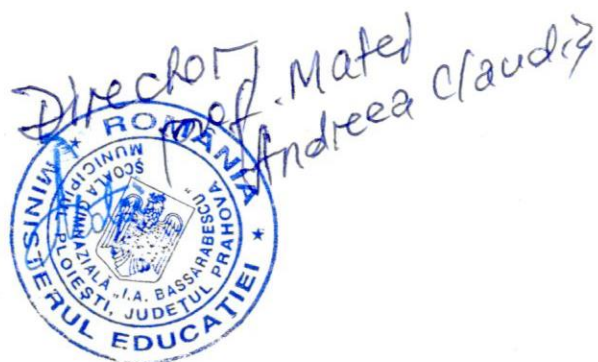 Director,
prof. Matei
Andreea Claudia
ROMÂNIA
MINISTERUL EDUCAȚIEI
ȘCOALA GIMNAZIALĂ „I.A. BASSARABESCU"
MUNICIPIUL PLOIEȘTI, JUDEȚUL PRAHOVA